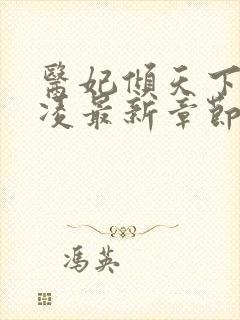 醫妃傾天下
凌最新章節
馮英